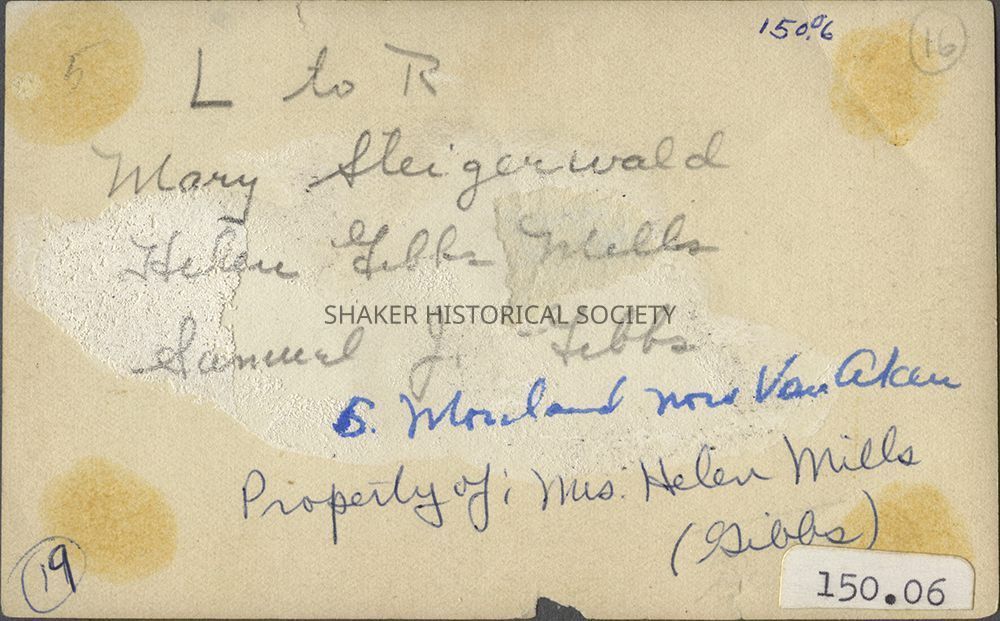 5
150.06
16
L to R
Mary Steigerwald
Helen Gibbs Mills
SHAKER HISTORICAL SOCIETY
Samuel J. Gibbs
S. Moreland now Van Aken
Property of; Mrs. Helen Mills
(Gibbs)
19
150.06